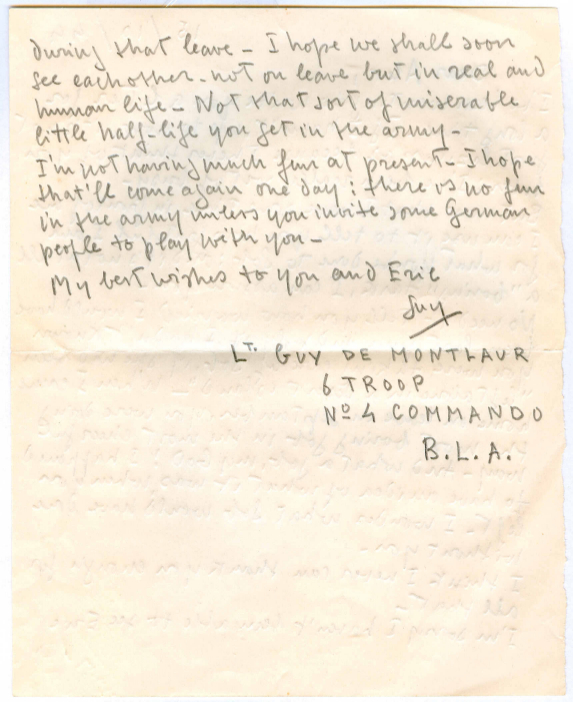 during that leave - I hope we shall soon
see eachother - not on leave but in real and
human life - Not that sort of miserable
little half-life you get in the army -
I'm not having much fun at present - I hope
that'll come again one day ; there is no fun
in the army unless you invite some German
people to play with you -
My best wishes to you and Eric
Guy
LT. GUY DE MONTLAUR
6 TROOP
Nº 4 COMMANDO
B.L.A.